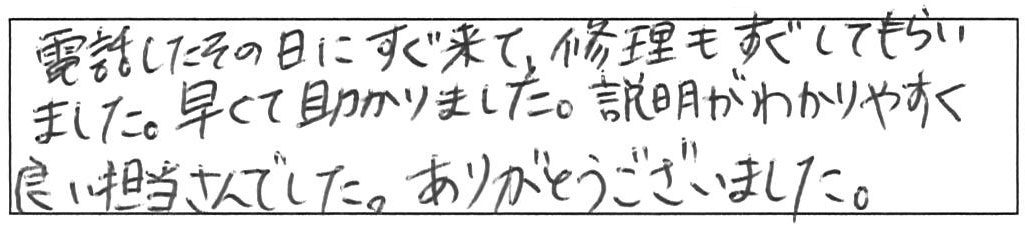 電話したその日にすぐ来て、修理もすぐしてもらい
ました。早くて助かりました。説明がわかりやすく
良い担当さんでした。ありがとうございました。